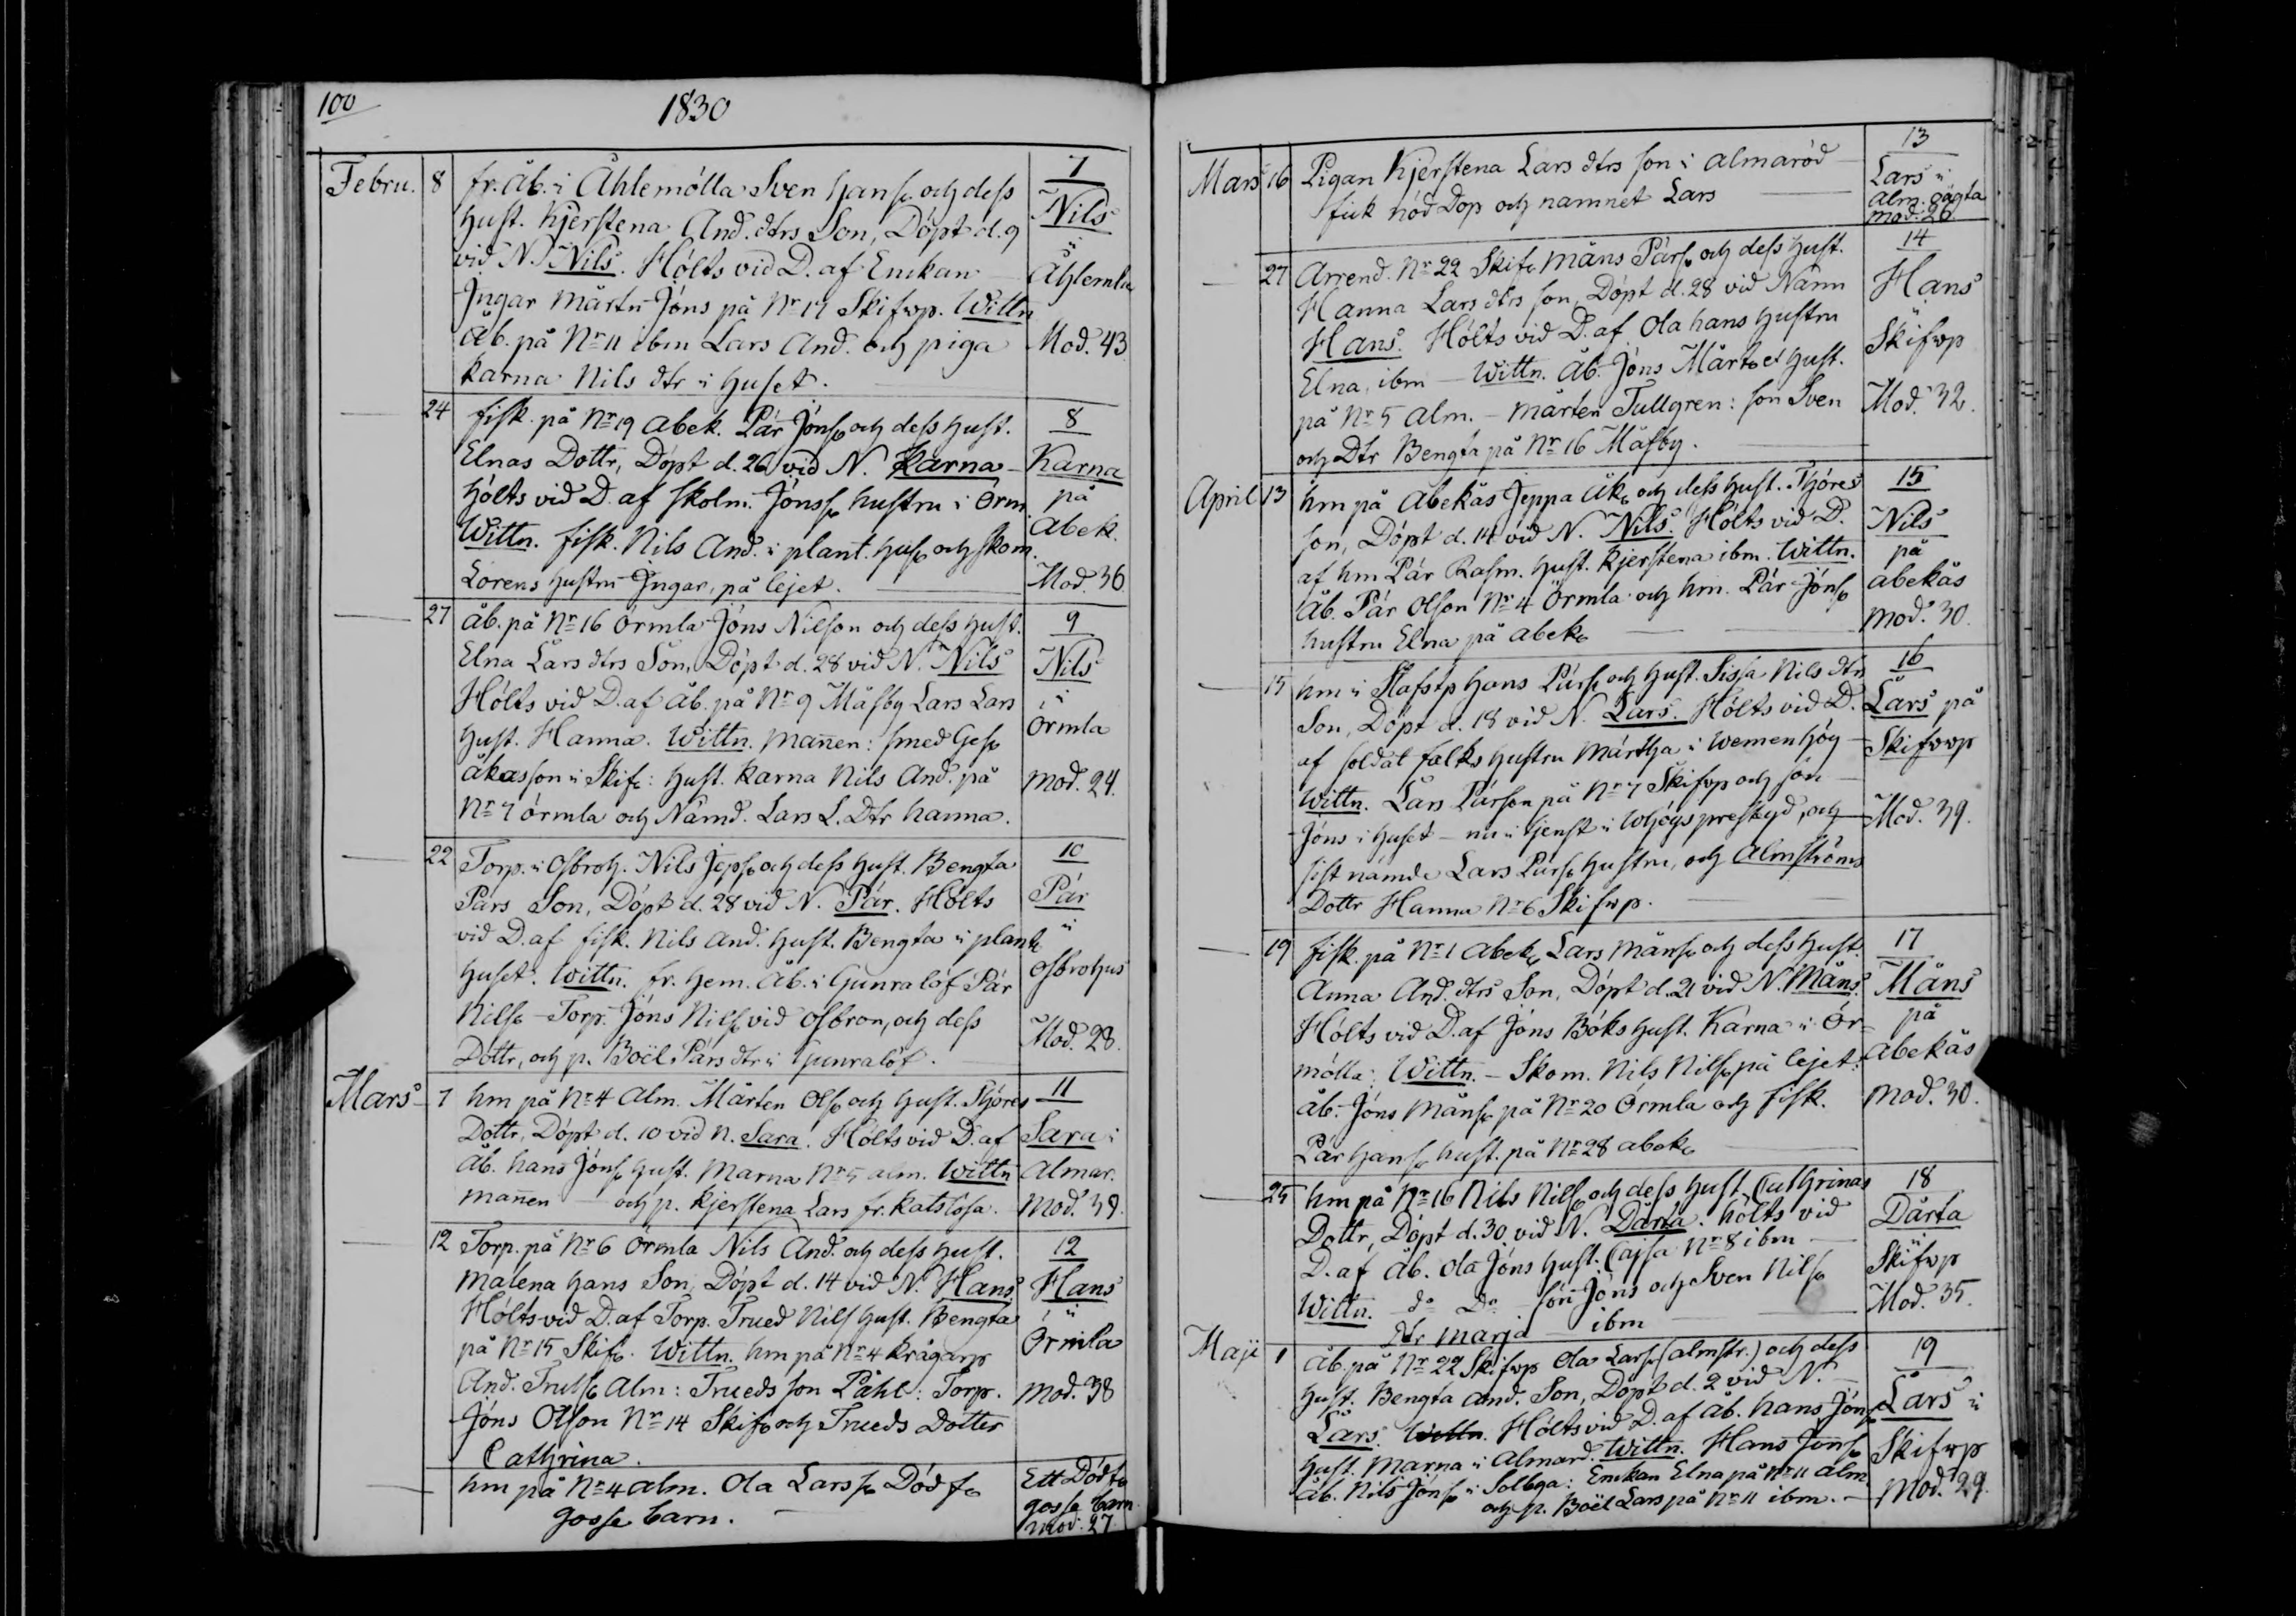 100
1830
Febru. 8 fr. Åb. i Åhlemölla Sven Hanss. och dess
Hust. Kjerstena And. dtrs Son, Döpt d. 9
vid N. Nils. Hölts vid D. af Enkan
Ingar Mårtn Jöns på Nr 17 Skifvp. Wittn
Åb. på Nr 11 ibm Lars And. och piga
Karna Nils dtr i Huset.
7
Nils
i
Åhlemla
Mod. 43
24 fisk. på Nr 19 Abek. Pär Jönss. och dess Hust.
Elnas Dottr, Döpt d. 26 vid N. Karna
Hölts vid D. af skolm. Jönss. hustru i Örm.
Wittn. fisk. Nils And. i plant. Huss. och skom.
Lorens Hustru Ingar, på lejet.
8
Karna
på
Abek.
Mod. 36
27 åb. på Nr 16 Örmla Jöns Nilson och dess Hust.
Elna Lars dtrs Son, Döpt d. 28 vid N. Nils
Hölts vid D. af åb. på Nr 9 Måsby Lars Lars
Hust. Hanna. Wittn. Mannen: smed
åkasson i Skif.: Hust. Karna Nils And. på
Nr 7 Örmla och Nämd. Lars L. Dtr hanna.
9
Nils
i
Örmla
mod. 24.
22 Torp. i Osbroh. Nils Jepss. och dess Hust. Bengta
Pärs Son, Döpt d. 28 vid N. Pär. Hölts
vid D. af fisk. Nils And. Hust. Bengta i plant.
Huset. Wittn. fr. Hem. Åb. i Gunralöf Pär
Nilss. – Torp. Jöns Nilss. vid Osbron, och dess
Dottr, och p. Boël Pärs dtr i Gunralöf.
10
Pär
i
Osbrohus
Mod. 28.
Mars 7 hm på Nr 4 Alm. Mårten Olss. och Hust. Thöres
Dottr, Döpt d. 10 vid N. Sara. Hölts vid D. af
Åb. hans Jönss. Hust. Marna Nr 5 alm. Wittn
mannen – och p. Kjerstena Lars fr. Katslösa.
11
Sara i
Almar.
Mod. 38.
12 Torp. på Nr 6 Örmla Nils And. och dess Hust.
Malena Hans Son, Döpt d. 14 vid N. Hans.
Hölts vid D. af Torp. Trued Nils Hust. Bengta
på Nr 15 Skif. Wittn. hm på Nr 4 Krågarp
And. Trulss. Alm: Trueds son Påhl: Torp.
Jöns Olson Nr 14 Skif. och Trueds Dotter
Cathrina.
12
Hans
i
Örmla
mod. 38
hm på Nr 4 alm. Ola Larss. Död f.
gosse barn.
Ett Död f.
gosse barn.
mod. 27.
Mars 16 Pigan Kjerstena Lars dtrs son i Almaröd
fick nöd Dop och namnet Lars
13
Lars i
Alm.
mod. 26
27 Arrend. Nr 22 Skif. Måns Pärss. och dess Hust.
Hanna Lars dtrs son, Döpt d. 28 vid Namn
Hans. Hölts vid D. af Ola hans Hustru
Elna, ibm – Wittn. Åb. Jöns Mårts. et Hust.
på Nr 5 Alm. – Mårten Tullgren: son Sven
och Dtr Bengta på Nr 16 Måsby.
14
Hans
i
Skifvp
Mod. 32.
April 13 hm på Abekås Jeppa Åk. och dess Hust. Thöres
son, Döpt d. 14 vid N. Nils. Hölts vid D.
af hm Pär Rasm. Hust. Kjerstena ibm. Wittn.
Åb. Pär Olson Nr 4 Örmla och hm. Pär Jönss.
hustru Elna på Abek.
15
Nils
på
abekås
mod. 30.
15 hm i Hans Pärss. och Hust. Sissa Nils dtr
Son, Döpt d. 18 vid N. Lars. Hölts vid D.
af soldat falks Hustru Märtha i Wemenhög
Wittn. Lars Pärson på Nr 7 Skifvp och son
Jöns i Huset – nu i tjenst i Whögs, och
sist nämde Lars Pärss. Hustru, och Almströms
Dottr Hanna Nr 6 Skifvp.
16
Lars på
Skifvp
Mod. 39.
19 fisk. på Nr 1 Abek. Lars Månss. och dess Hust.
Anna And. dtrs Son, Döpt d. 21 vid N. Måns.
Hölts vid D. af Jöns Böks Hust. Karna i Ör-
mölla: Wittn. – Skom. Nils Nilss. på lejet:
åb. Jöns Månss. på Nr 20 Örmla och fisk.
Pär Hanss. hust. på Nr 28 abek.
17
Måns
på
Abekås
mod. 30.
25 hm på Nr 16 Nils Nilss. och dess Hust. Cathrinas
Dottr, Döpt d. 30 vid N. Därta. hölts vid
D. af åb. Ola Jöns Hust. Cajsa Nr 8 ibm
Wittn. do Do – son Jöns och Sven Nilss.
Dtr Marja – ibm
18
Därta
i
Skifvp
Mod. 35.
Maji 1 åb. på Nr 22 Skifvp Ola Larss. (almstr.) och dess
Hust. Bengta And. Son, Döpt d. 2 vid N.
Lars. Wittn. Hölts vid D. af Åb. Hans Jönss.
Hust. Marna i Almard. Wittn. Hans Jönss.
åb. Nils Jönss. i Solbga: Enkan Elna på Nr 11 Alm
och p. Boël Lars på Nr 11 ibm.
19
Lars i
Skifvp
Mod. 29.